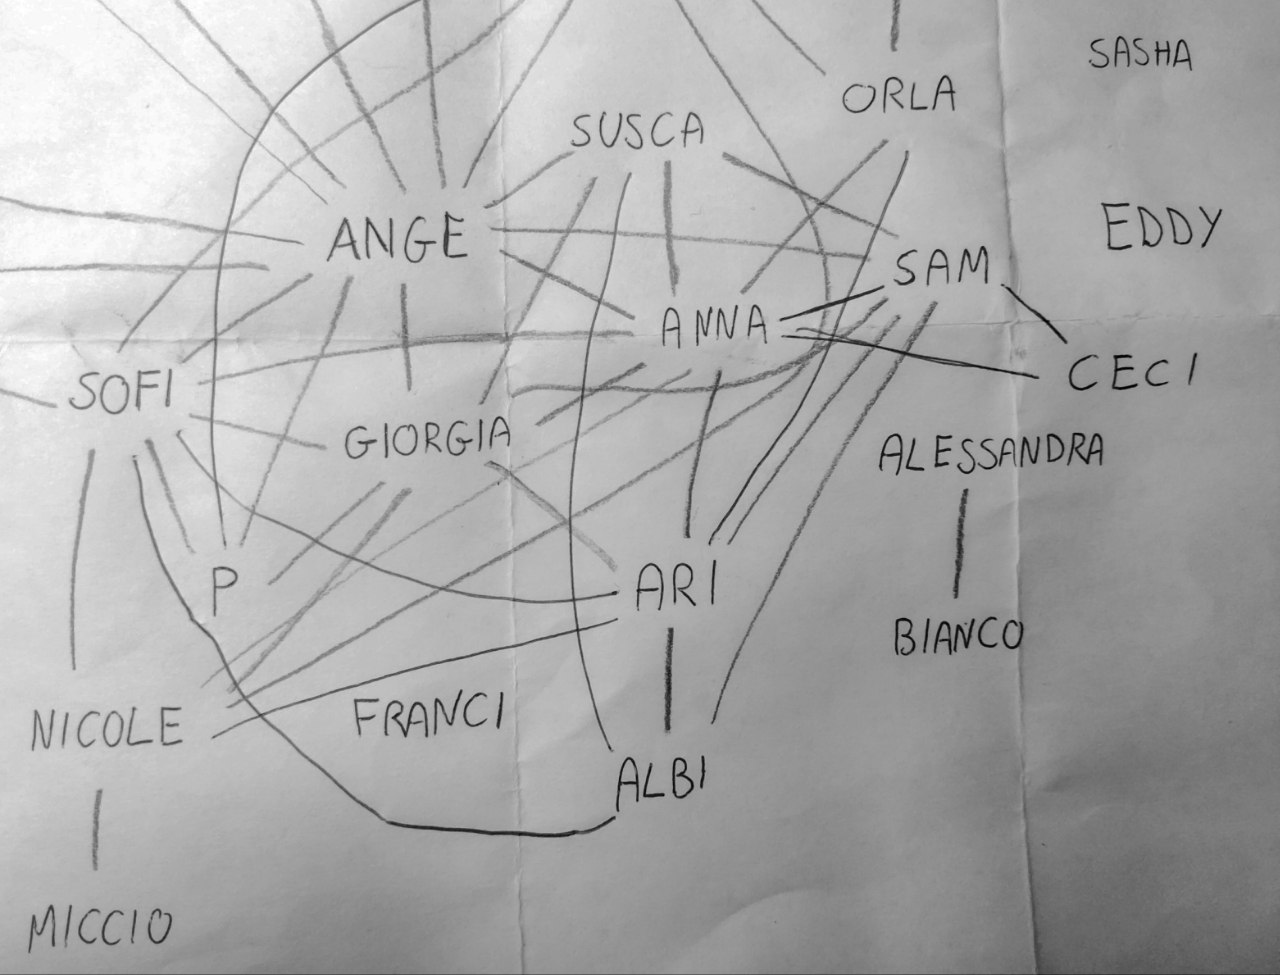 SASHA
ORLA
SUSCA
EDDY
ANGE
SAM
ANNA
CECI
SOFI
GIORGIA
ALESSANDRA
P
ARI
BIANCO
FRANCI
NICOLE
ALBI
MICCIO